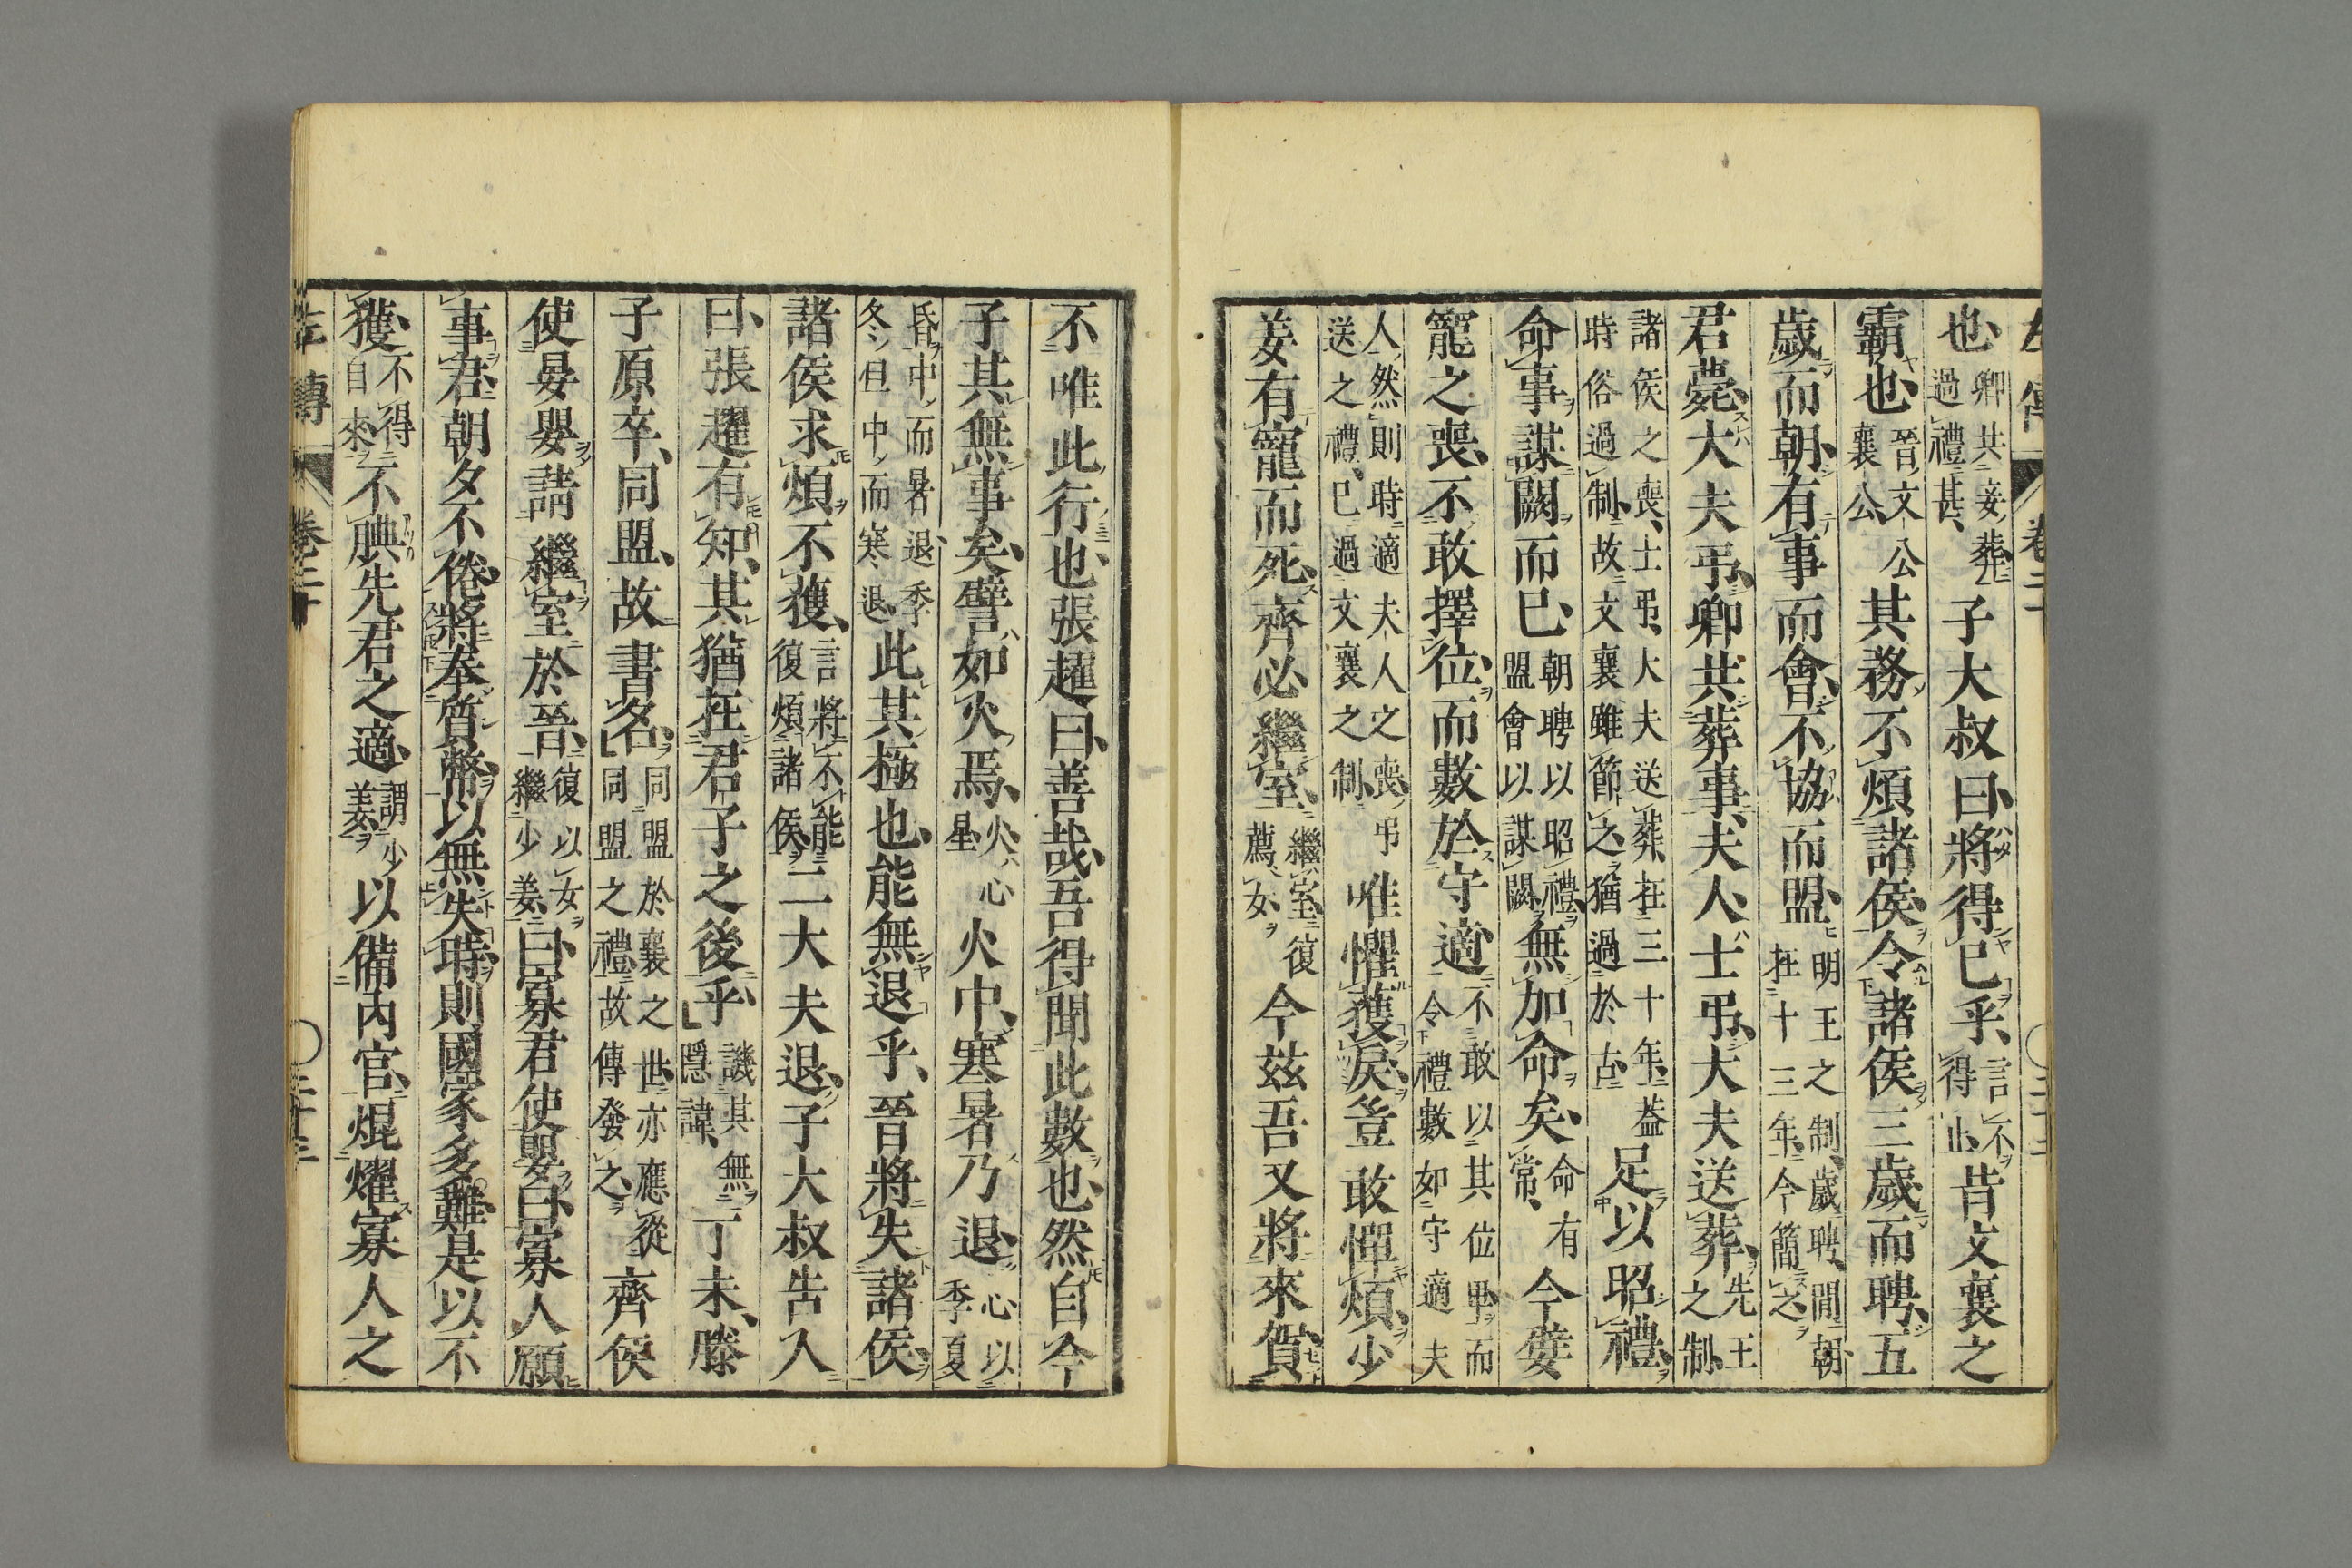 左傳　卷二十　〇二十二
也、卿共妾葬、過禮甚、子大叔曰、將得已乎、言不得止、昔文襄之
霸也、晉文公襄公、其務不煩諸侯、令諸侯三歲而聘、五
歲而朝、有事而會、不協而盟、明王之制、歲聘、間朝、在十三年、今簡之、
君薨、大夫弔、卿共葬事、夫人、士弔、大夫送葬、先王之制、
諸侯之喪、士弔、大夫送葬、在三十年、葢時俗過制、故文襄雖節之、猶過於古、足以昭禮、
命事謀闕而已、朝聘以昭禮、盟會以謀闕、無加命矣、命有常、今嬖
寵之喪、不敢擇位、而數於守適、不敢以其位卑、而令禮數如守適夫
人、然則時適夫人之喪、弔送之禮、已過文襄之制、唯懼獲戾、豈敢憚煩、少
姜有寵而死、齊必繼室、繼室、復薦女、今茲吾又將來賀、
不唯此行也、張趯曰、善哉、吾得聞此數也、然自今
子其無事矣、譬如火焉、火、心星、火中、寒暑乃退、心以季夏
昏中、而暑退、季冬、旦中、而寒退、此其極也、能無退乎、晉將失諸侯、
諸侯求煩不獲、言將不能復煩諸侯、二大夫退、子大叔告人
曰、張趯有知、其猶在君子之後乎、譏其無隱諱、丁未、滕
子原卒、同盟、故書名、同盟於襄之世、亦應從同盟之禮、故傳發之、齊侯
使晏嬰請繼室於晉、復以女繼少姜、曰、寡君使嬰曰、寡人願
事君、朝夕不倦、將奉質幣、以無失時、則國家多難、是以不
獲、不得自來、不腆先君之適、謂少姜、以備內官、焜燿寡人之
左傳　卷二十　〇二十三